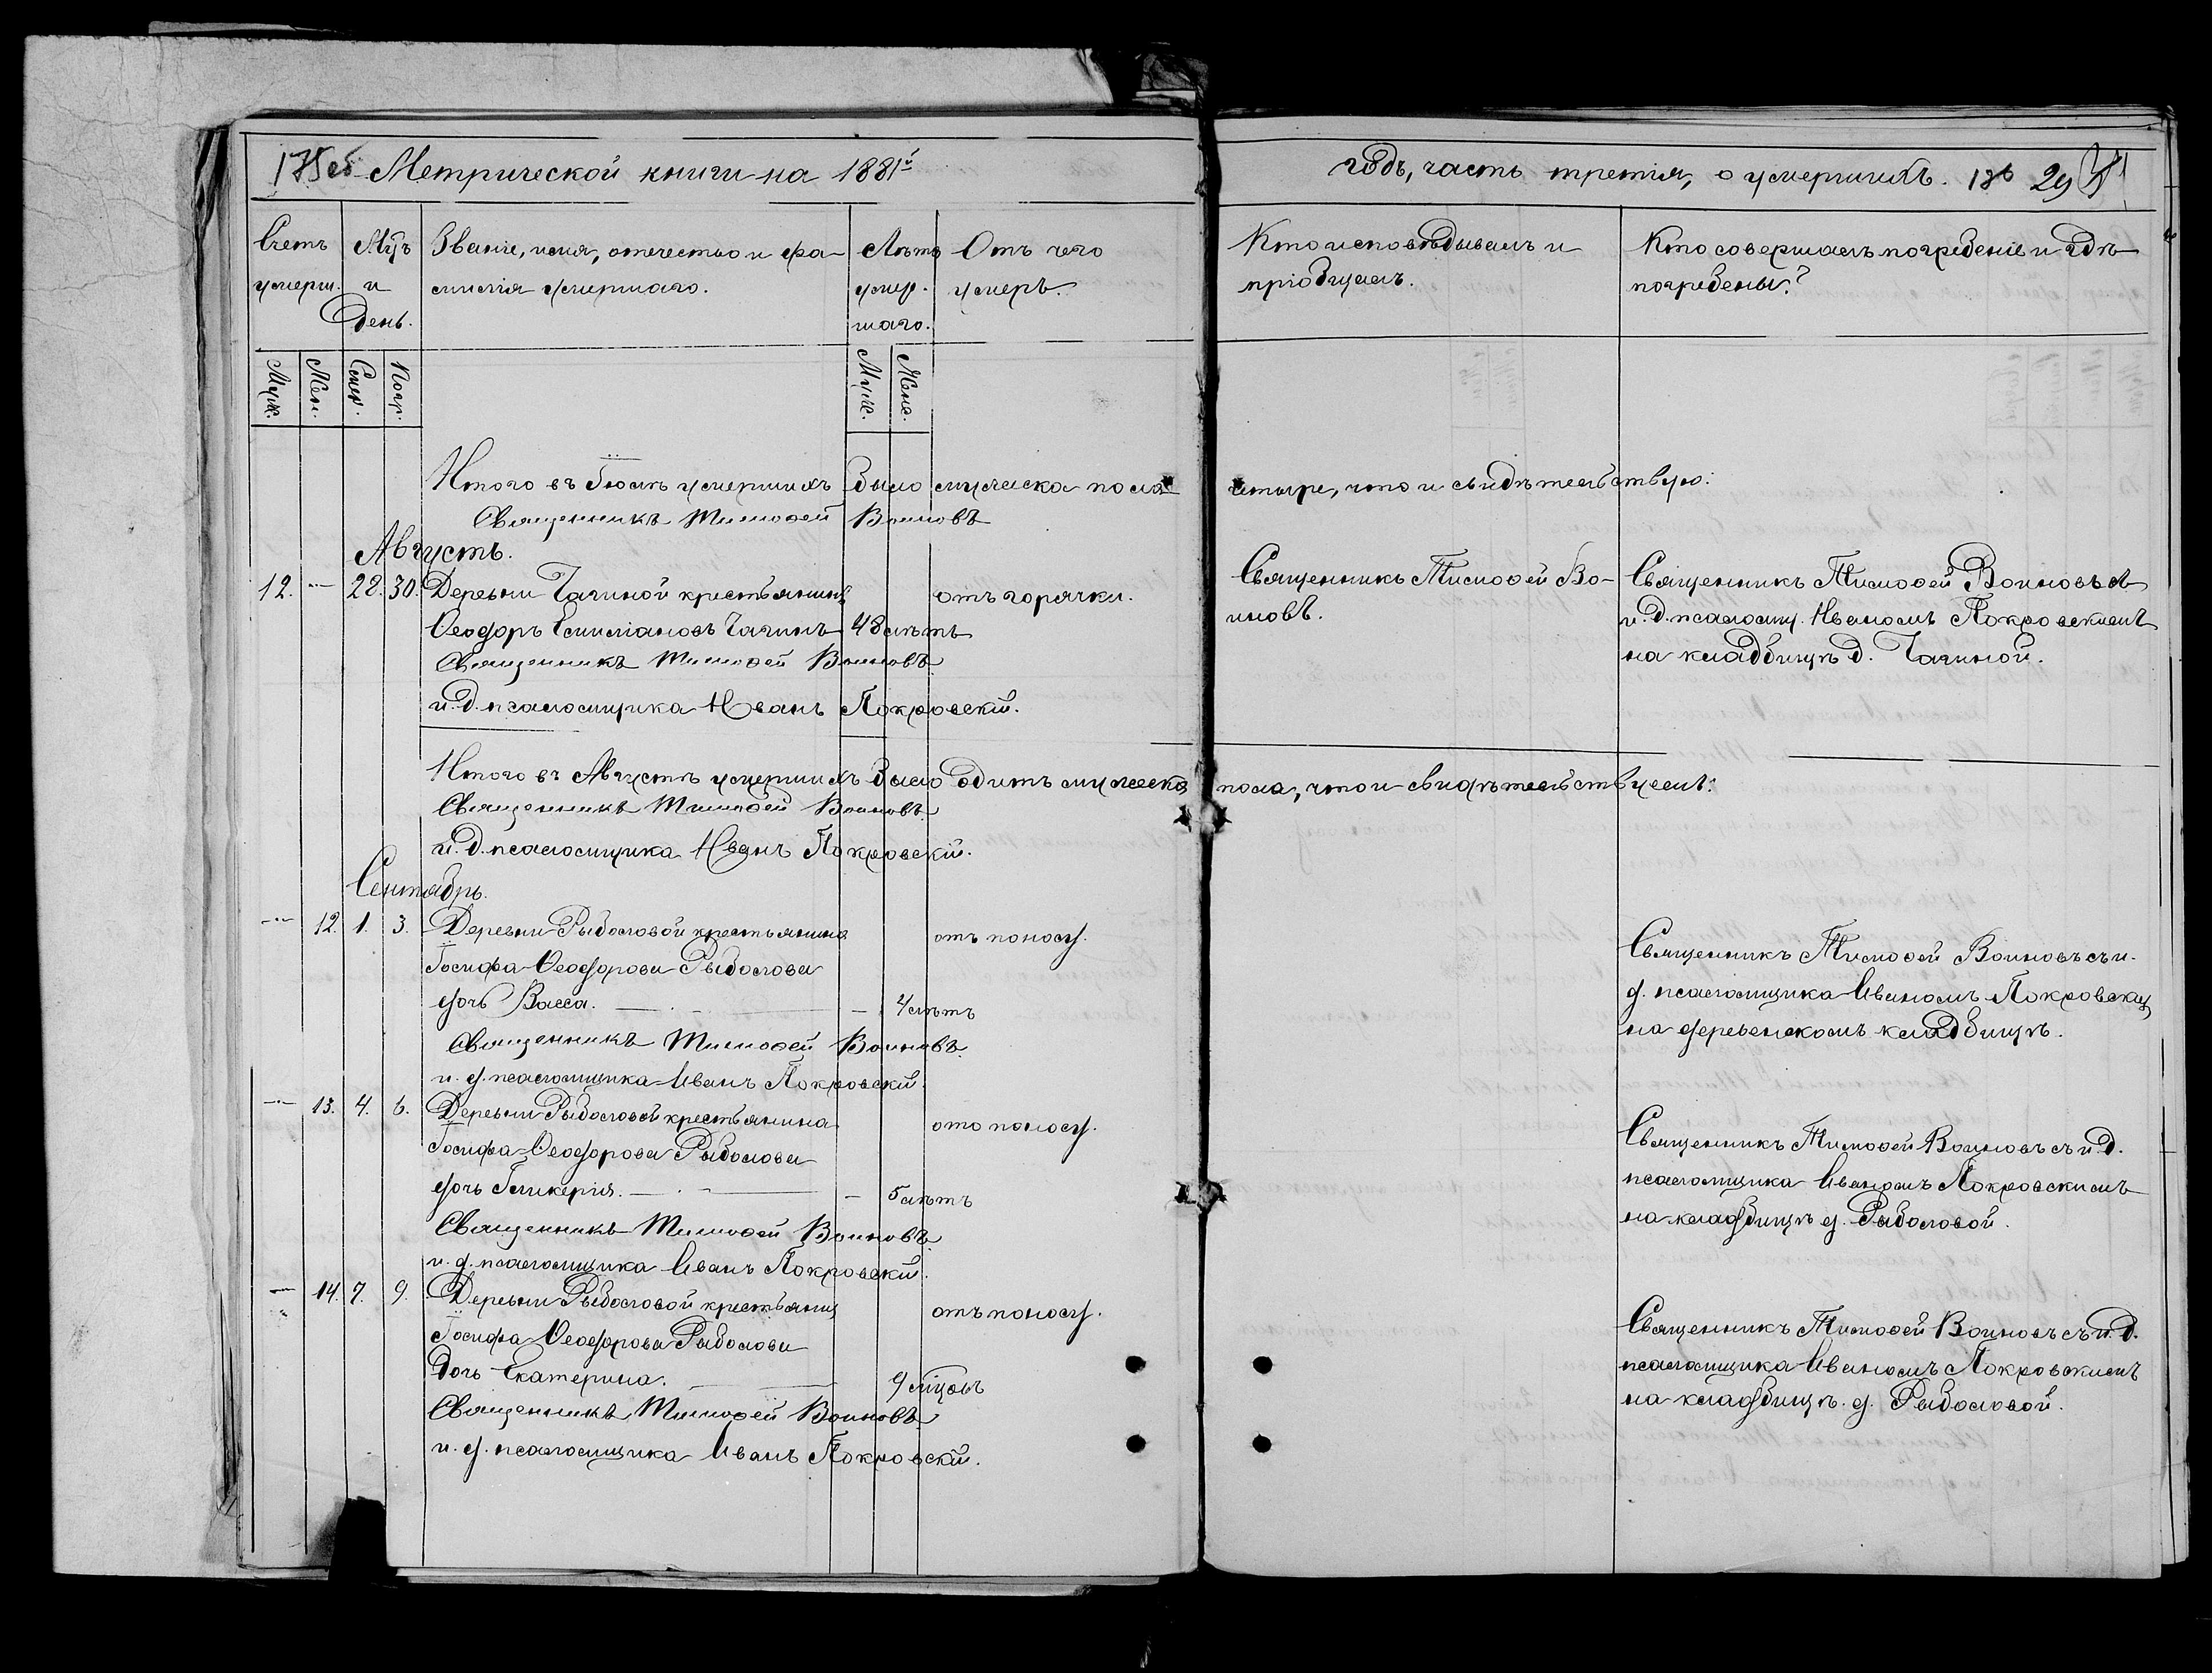 175об Метрической книги на 1881й
годъ, часть третія, о умершихъ. 186 29
Счетъ
умерш.
Мцъ
и
День.
Званіе, имя, отечество и фа-
милія умершаго.
Лѣта
умер-
шаго.
Отъ чего
умеръ.
Кто исповѣдывалъ и
пріобщалъ.
Кто совершалъ погребеніе и гдѣ
погребены?
Муж.
Жен.
Смер.
Погр.
Муж.
Жен.
Итого въ Іюлѣ умершихъ было мужеска пола четыре, что и свидѣтельствую:
Священникъ Тимофей Воиновъ
Августъ.
12. — 28. 30. Деревни Чагиной крестьянинъ отъ горячки.
Ѳеодоръ Емиліановъ Чагинъ 48 лѣтъ
Священникъ Тимофей Воиновъ
и. д. псаломщика Иванъ Покровскій.
Священникъ Тимофей Во-
иновъ.
Священникъ Тимофей Воиновъ
и. д. псаломщ. Иваномъ Покровскимъ
на кладбищѣ д. Чагиной.
Итого въ Августѣ умершихъ было одинъ мужеска пола, что и свидѣтельствуемъ:
Священникъ Тимофей Воиновъ.
и. д. псаломщика Иванъ Покровскій.
Сентябрь.
— 12. 1. 3. Деревни Рыболовой крестьянина отъ поносу.
Іосифа Ѳеодорова Рыболова
дочь Васса. — 4 лѣтъ
Священникъ Тимофей Воиновъ.
и. д. псаломщика Иванъ Покровскій.
Священникъ Тимофей Воиновъ съ и.
д. псаломщика Иваномъ Покровски
на деревенскомъ кладбищѣ.
— 13. 4. 6. Деревни Рыболовой крестьянина ото поносу.
Іосифа Ѳеодорова Рыболова
дочь Гликерія. — 5 лѣтъ
Священникъ Тимофей Воиновъ.
и. д. псаломщика Иванъ Покровскій.
Священникъ Тимофей Воиновъ съ и. д.
псаломщика Иваномъ Покровскимъ
на кладбищѣ д. Рыболовой.
— 14. 7. 9. Деревни Рыболовой крестьянин отъ поносу.
Іосифа Ѳеодорова Рыболова
дочь Екатерина. мѣцовъ
Священникъ Тимофей Воиновъ
и. д. псаломщика Иванъ Покровскій.
Священникъ Тимофей Воиновъ съ и. д.
псаломщика Иваномъ Покровскимъ
на кладбищѣ. д. Рыболовой.